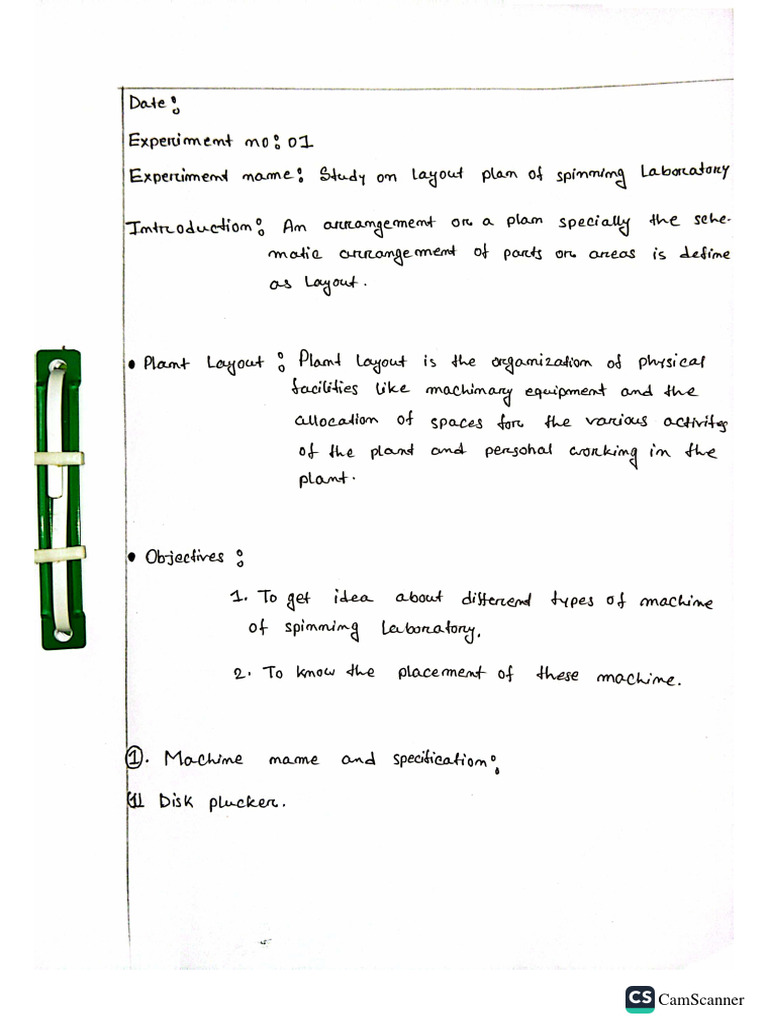 Date:
Experiment no: 01
Experiment name: Study on layout plan of spinning Laboratory
Introduction: An arrangement or a plan specially the sche-
matic arrangement of parts or areas is define
as Layout.
• Plant Layout: Plant Layout is the organization of physical
facilities like machinary equipment and the
allocation of spaces for the various activites
of the plant and personal working in the
plant.
• Objectives:
1. To get idea about different types of machine
of spinning Laboratory.
2. To know the placement of these machine.
1. Machine name and specification:
Disk plucker.
CS CamScanner